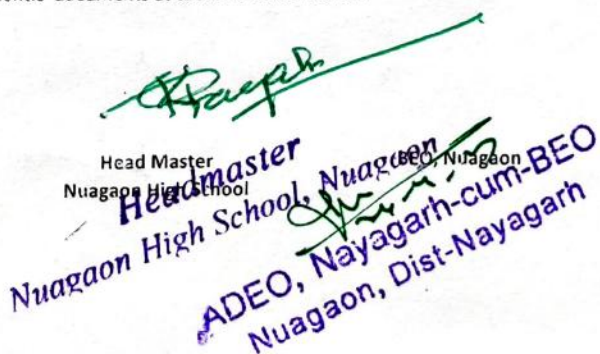 Head Master
Nuagaon High School
Headmaster
Nuagaon High School, Nuagaon
BEO, Nuagaon
ADEO, Nayagarh-cum-BEO
Nuagaon, Dist-Nayagarh